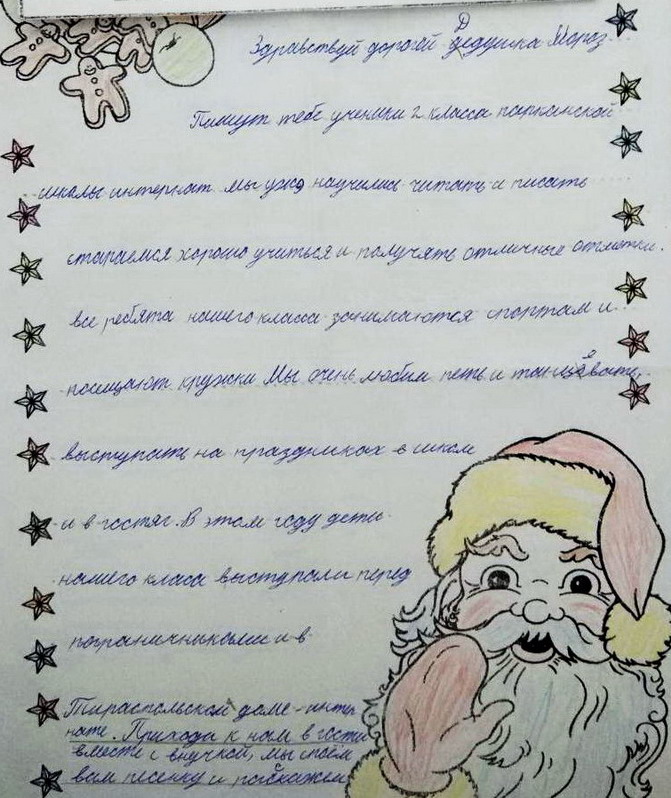 Здравствуй дорогей Дедушка Мороз.
Пишут тебе ученики 2 класса парканской
школы интернат мы уже научились читать и писать
стараемся хорошо учиться и получять отличные отметки.
все ребята нашего класса занимаются спортам и
посещают кружки Мы очень любим петь и
выступать на праздниках в школе
и в гостяг. В этом году дети
нашего класа выступали перед
пограничниками и в
Тираспольском доме-интер
нате. Приходи к нам в гости
вместе с внучкой, мы споём
вам песенку и расскажем